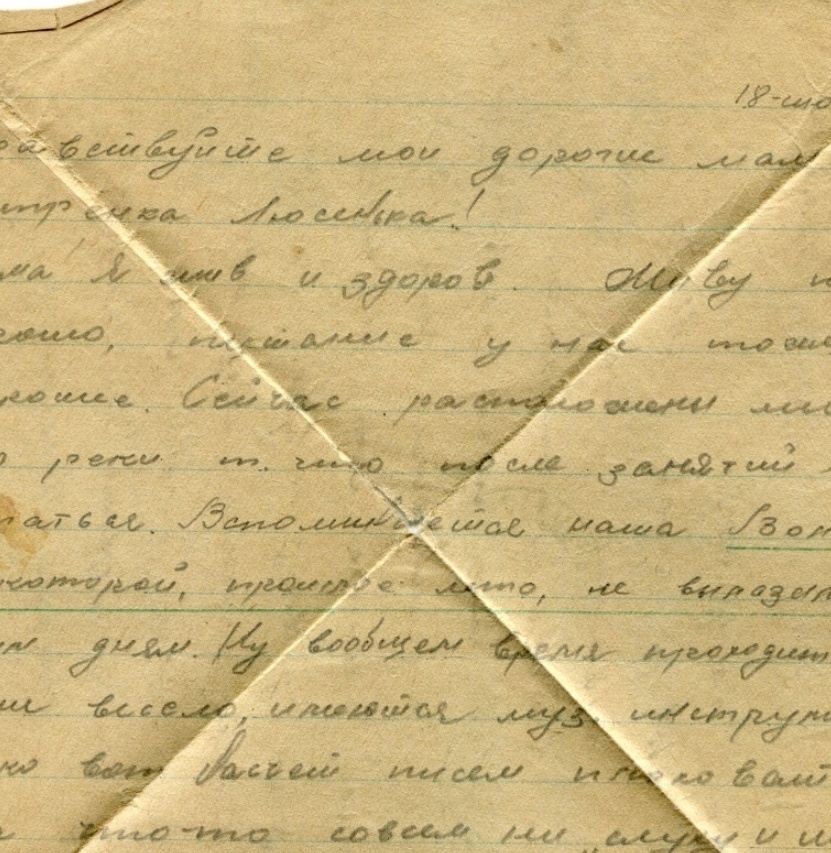 18-ию
авствуйте мои дорогие мам
трёнка Люсинька!
ма! Я жив и здоров. Живу
рошо, питание у нас тоже
рошие. Сейчас расположены
реки т. что после занятий
паться. Вспоминается наша Вол
которой, прошлое лето, не вылазал
дням. Ну вообщем время проходит
весело, имеются муз. инструм
ко вот насчет писем плоховат
что-то совсем ни слуху и